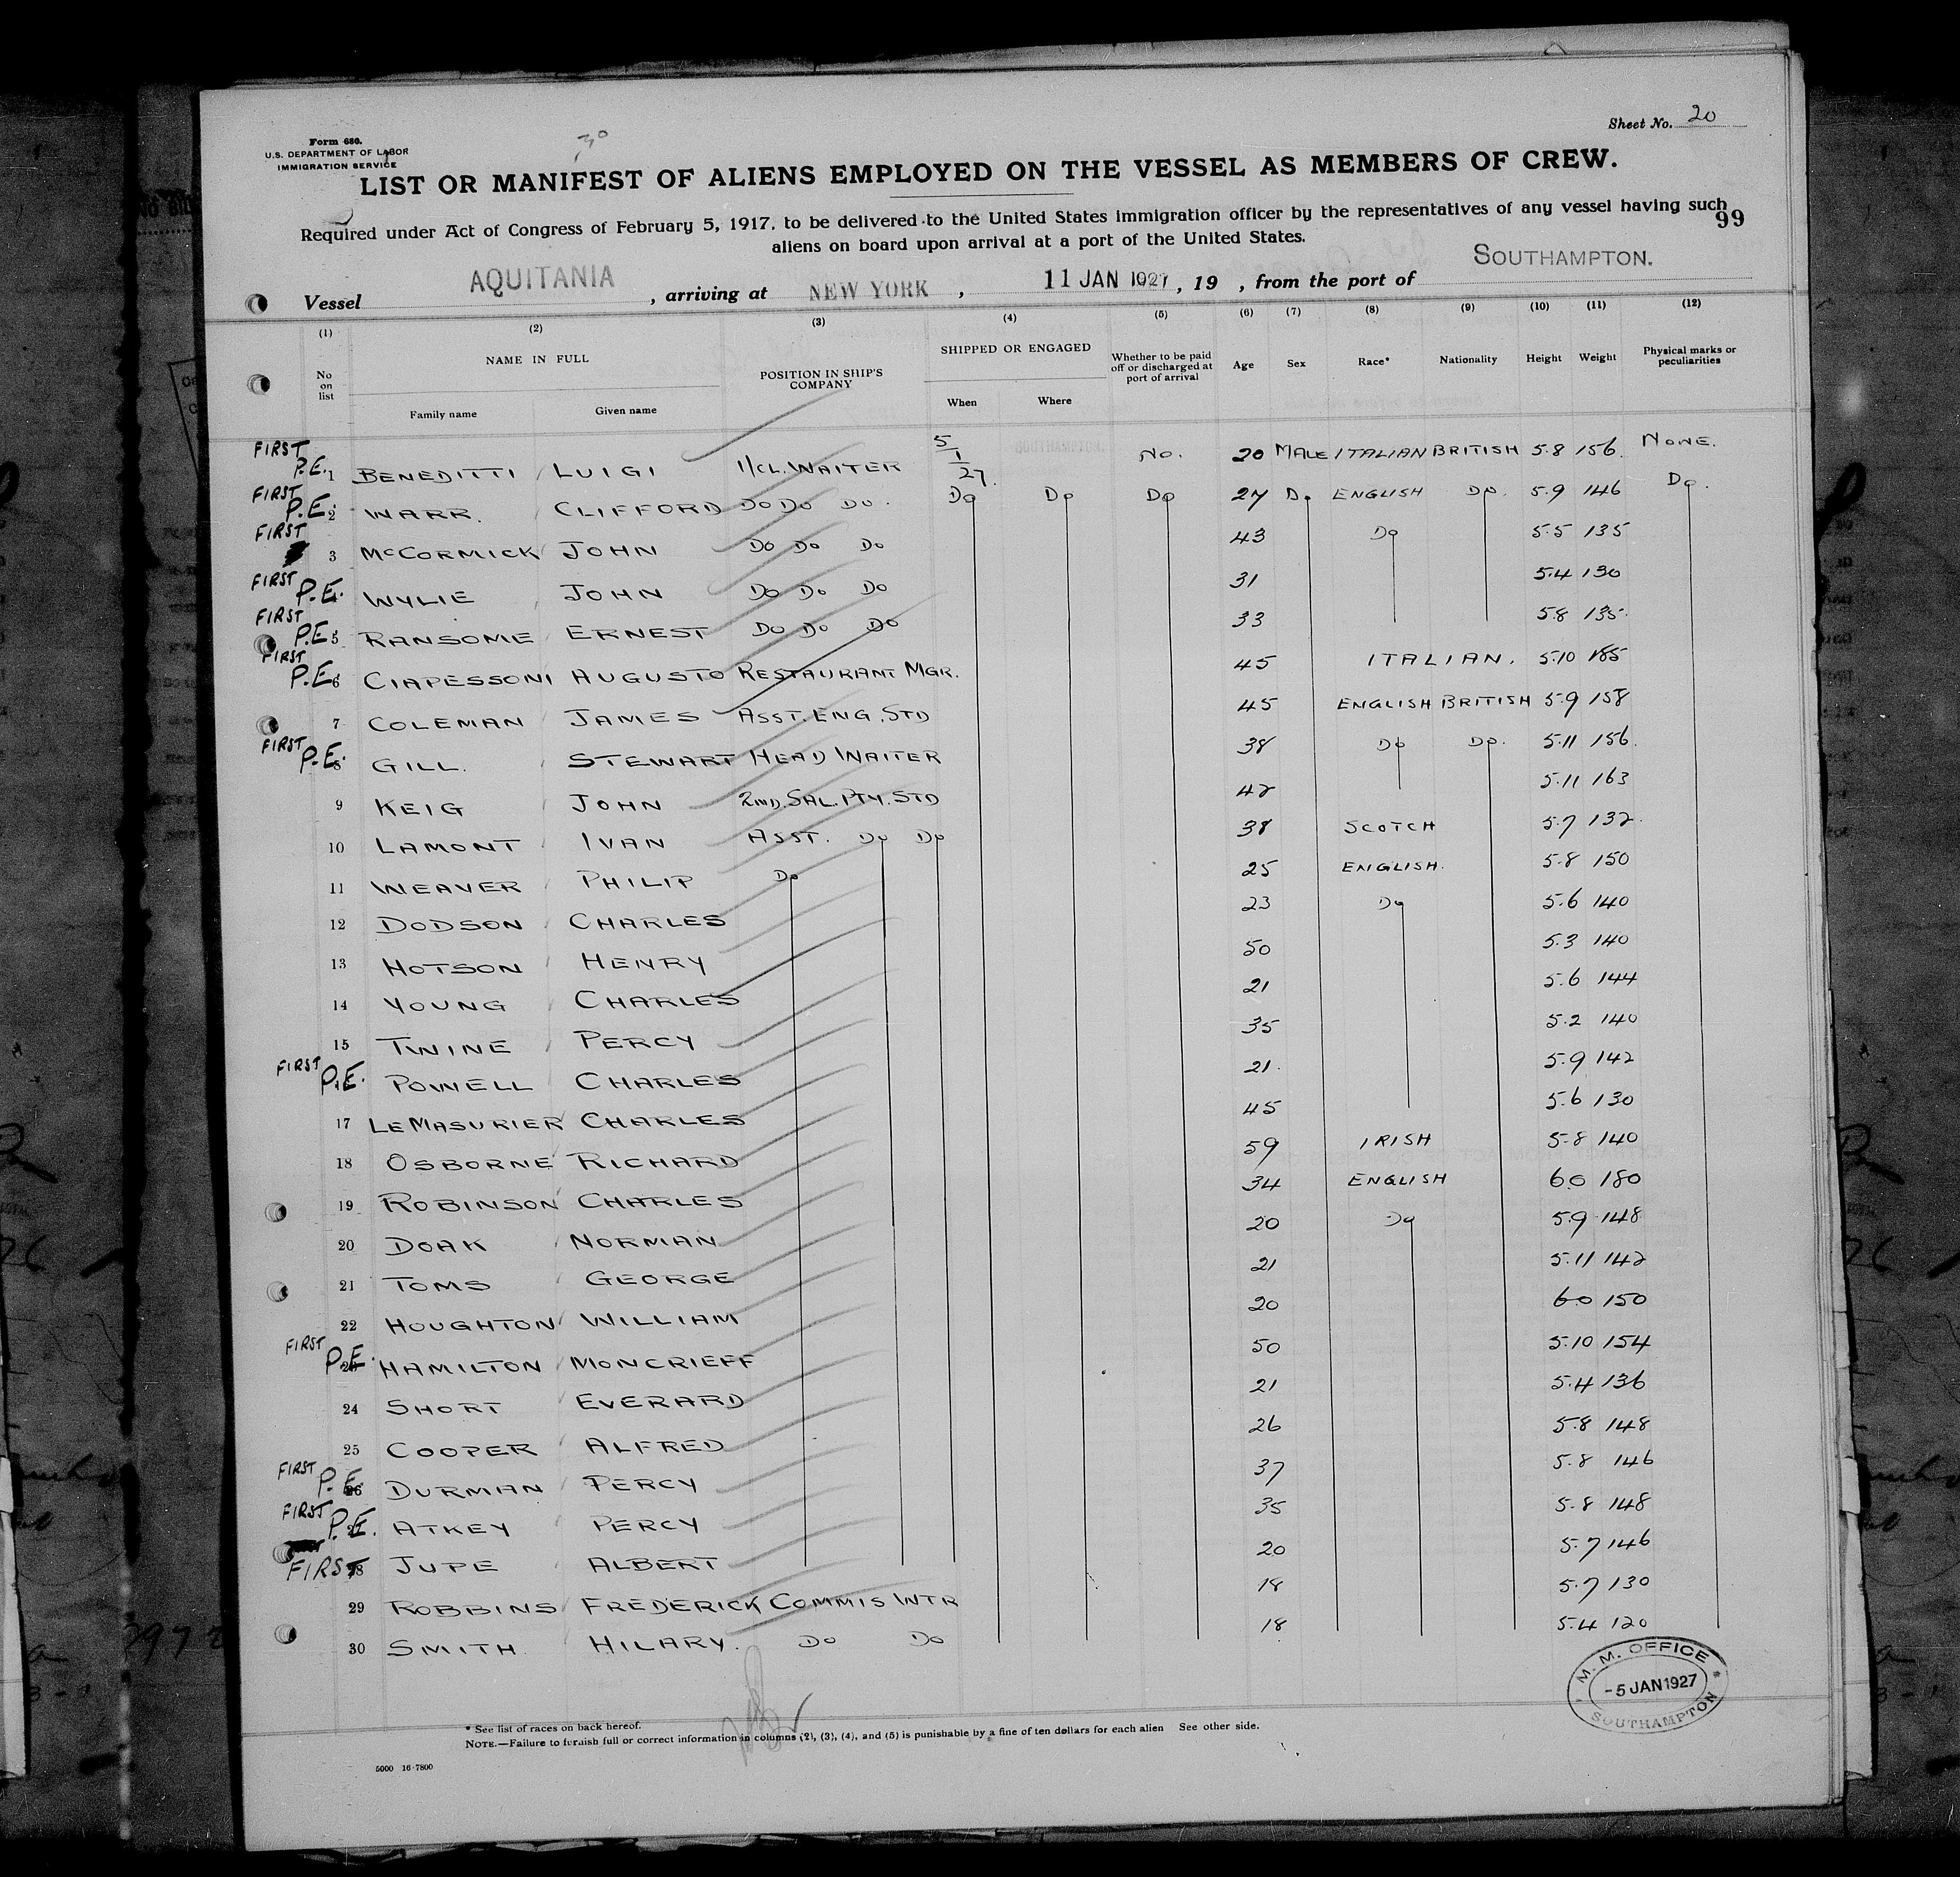 Sheet No. 20
Form 680.
U.S. DEPARTMENT OF LABOR
IMMIGRATION SERVICE
LIST OR MANIFEST OF ALIENS EMPLOYED ON THE VESSEL AS MEMBERS OF CREW.
Required under Act of Congress of February 5, 1917, to be delivered to the United States immigration officer by the representatives of any vessel having such
99
aliens on board upon arrival at a port of the United States.
Vessel AQUITANIA, arriving at NEW YORK, 11 JAN 1927, 19 , from the port of SOUTHAMPTON.
(1) (2) (3) (4) (5) (6) (7) (8) (9) (10) (11) (12)
No on list NAME IN FULL POSITION IN SHIP'S COMPANY SHIPPED OR ENGAGED Whether to be paid off or discharged at port of arrival Age Sex Race* Nationality Height Weight Physical marks or peculiarities
Family name Given name When Where
FIRST P.E. 1 BENEDITTI LUIGI 1/CL. WAITER 5/1/27. SOUTHAMPTON. No. 20 MALE ITALIAN BRITISH 5.8 156 NONE.
FIRST P.E. 2 WARR. CLIFFORD DO DO DO. DO DO DO 27 DO ENGLISH DO. 5.9 146 DO.
FIRST 3 McCORMICK JOHN DO DO DO 43 DO 5.5 135
FIRST P.E. WYLIE JOHN DO DO DO 31 5.4 130
FIRST P.E. 5 RANSOME ERNEST DO DO DO 33 5.8 135
FIRST P.E. 6 CIAPESSONI AUGUSTO RESTAURANT MGR. 45 ITALIAN. 5.10 185
7 COLEMAN JAMES ASST. ENG. STD 45 ENGLISH BRITISH 5.9 158
FIRST P.E. 8 GILL. STEWART HEAD WAITER 38 DO DO. 5.11 156.
9 KEIG JOHN 2ND. SAL. PTY. STD 42 5.11 163
10 LAMONT IVAN ASST. DO DO 38 SCOTCH 5.7 132.
11 WEAVER PHILIP DO 25 ENGLISH. 5.8 150
12 DODSON CHARLES 23 DO 5.6 140
13 HOTSON HENRY 50 5.3 140
14 YOUNG CHARLES 21 5.6 144
15 TWINE PERCY 35 5.2 140
FIRST P.E. POWELL CHARLES 21. 5.9 142
17 LEMASURIER CHARLES 45 5.6 130
18 OSBORNE RICHARD 59 IRISH 5.8 140
19 ROBINSON CHARLES 34 ENGLISH 6.0 180
20 DOAK NORMAN 20 DO 5.9 148
21 TOMS GEORGE 21 5.11 142
22 HOUGHTON WILLIAM 20 6.0 150
FIRST P.E. 23 HAMILTON MONCRIEFF 50 5.10 154
24 SHORT EVERARD 21 5.4 136
25 COOPER ALFRED 26 5.8 148
FIRST P.E. 26 DURMAN PERCY 37 5.8 146
FIRST P.E. 27 ATKEY PERCY 35 5.8 148
FIRST 28 JUPE ALBERT 20 5.7 146
29 ROBBINS FREDERICK COMMIS WTR 18 5.7 130
30 SMITH. HILARY. DO DO 18 5.4 120
M. M. OFFICE
-5 JAN 1927
SOUTHAMPTON
* See list of races on back hereof.
NOTE.—Failure to furnish full or correct information in columns (2), (3), (4), and (5) is punishable by a fine of ten dollars for each alien See other side.
5000 16-7800